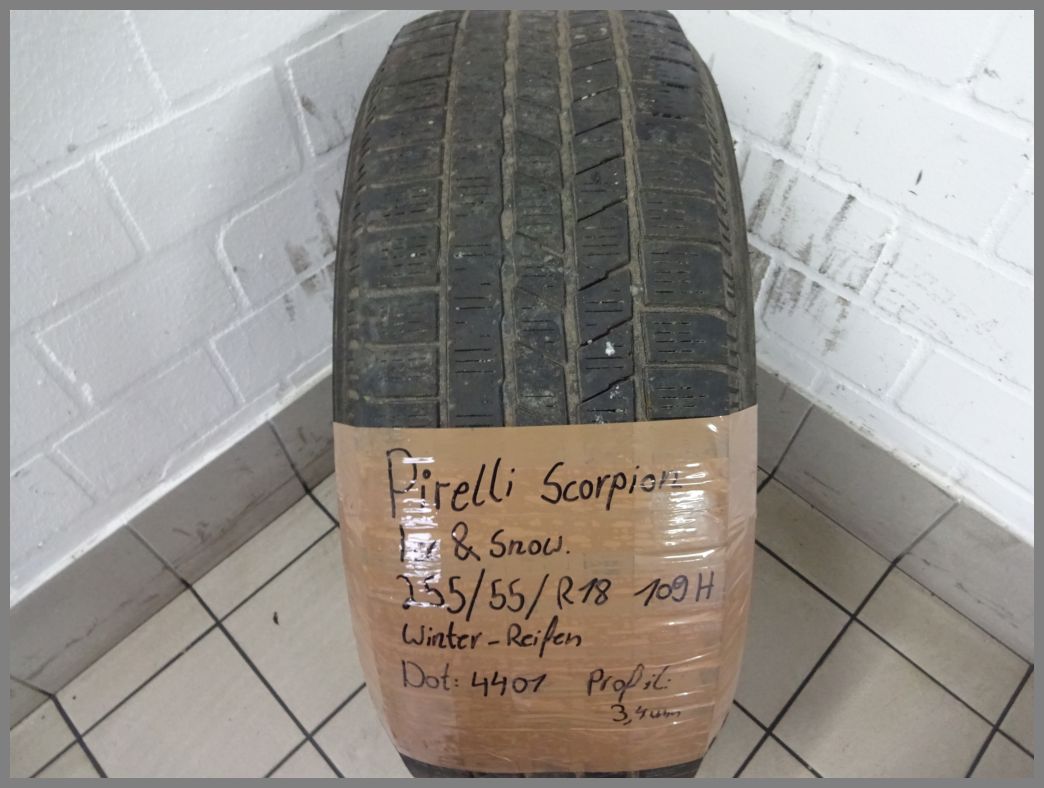 Pirelli Scorpion
& Snow.
255/55/R18 109H
Winter-Reifen
Dot: 4401 Profil:
3,4mm